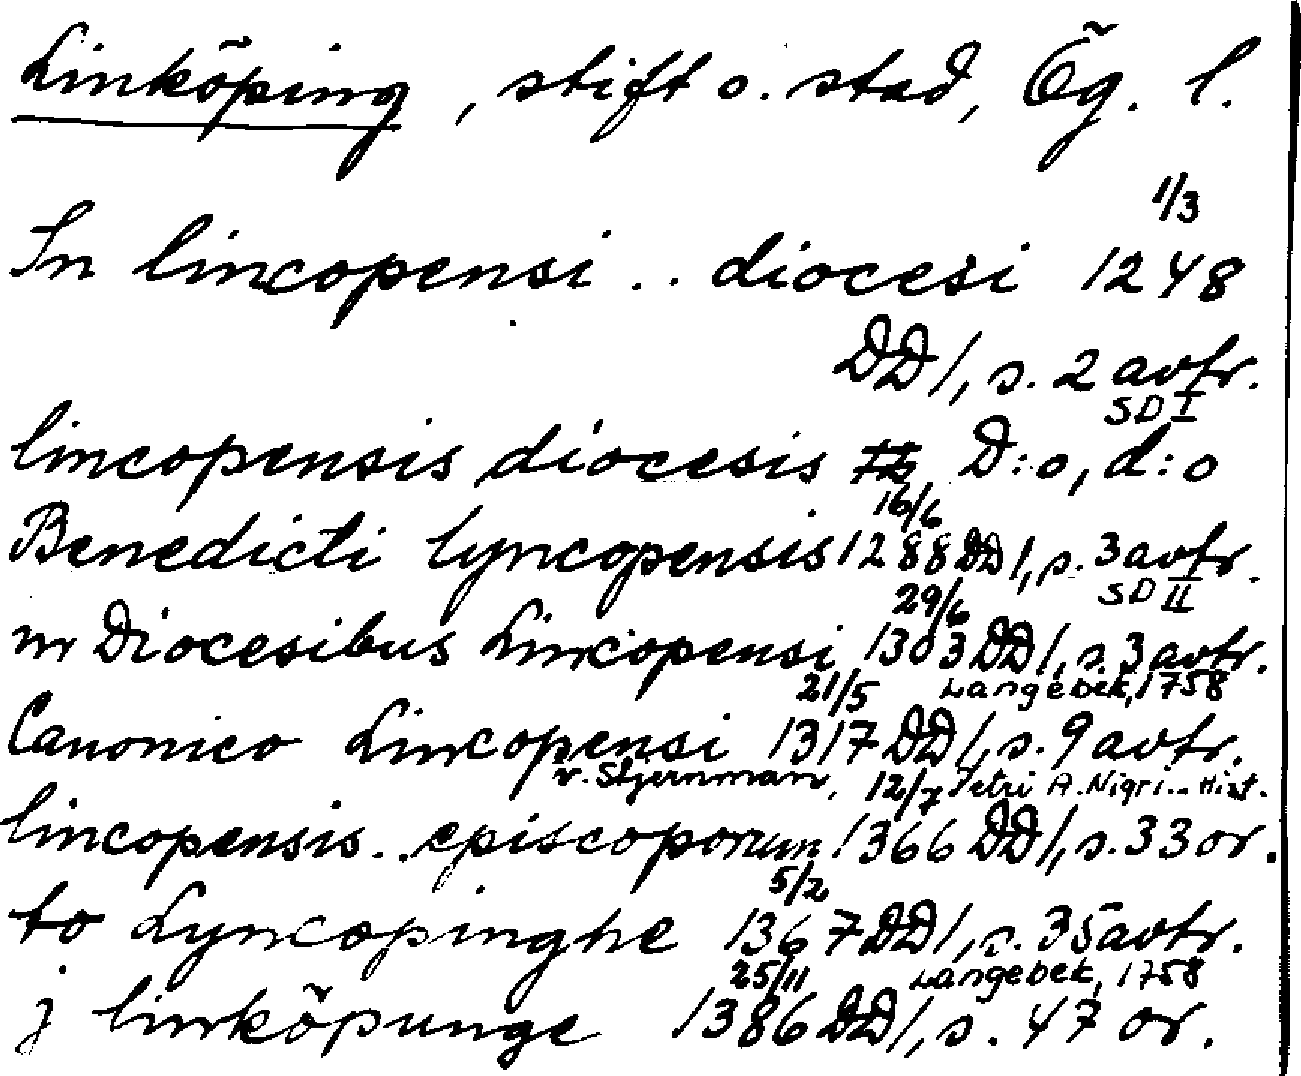 Linköping, stift o. stad, Ög. l.
1/3
In lincopensi .. diocesi 1248
DD 1, s. 2 avtr.
SD I
lincopensis diocesis D:o, d:o
16/6
Benedicti lyncopensis 1288 DD 1, s. 3 avtr.
29/6 SD II
in Diocesibus Lincopensi 1303 DD 1, s. 3 avtr.
21/5 Langebek, 1758
Canonico Lincopensi 1317 DD 1, s. 9 avtr.
v. Stjernman, 12/7 Petri A. Nigri... Hist.
lincopensis .. episcoporum 1366 DD 1, s. 33 or.
5/2
to Lyncopinghe 1367 DD 1, s. 35 avtr.
25/11 Langebek, 1758
j linköpunge 1386 DD 1, s. 47 or.